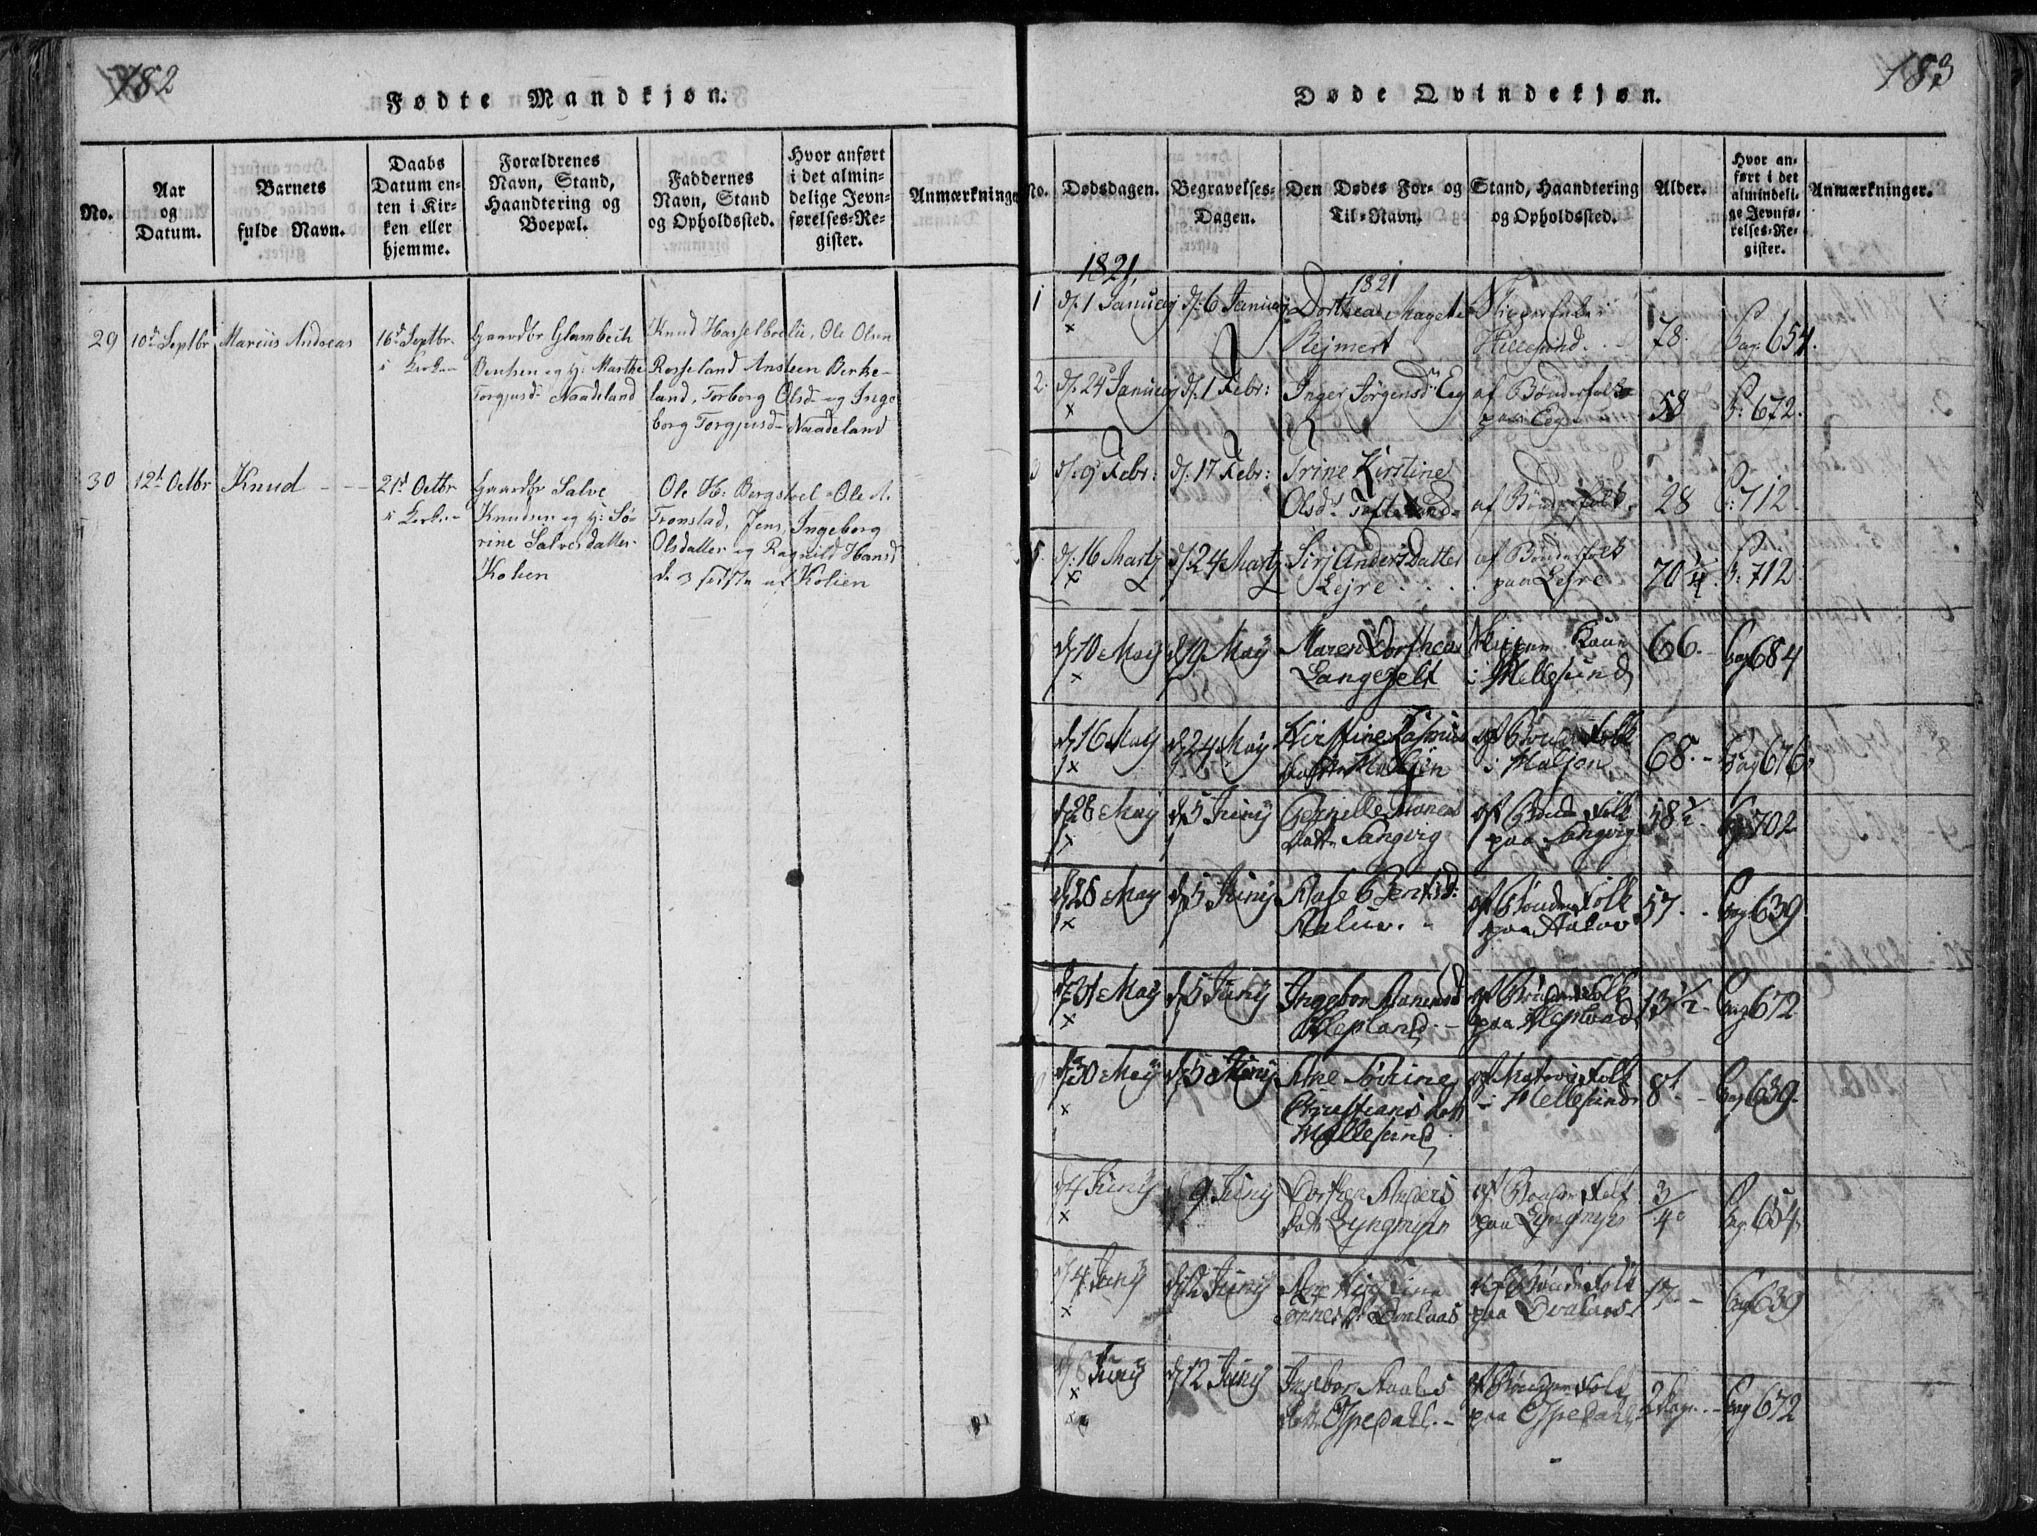 182
Fødte Mandkjøn.
No.
Aar
og
Datum.
Barnets
fulde Navn.
Daabs
Datum en-
ten i Kir-
ken eller
hjemme.
Forældrenes
Navn, Stand,
Haandtering og
Boepæl.
Faddernes
Navn, Stand
og Opholdssted.
Hvor anført
i det almin-
delige Jevn-
førelses-Re-
gister.
Anmærkninger
29
10d Septbr
Marcus Andreas
16d Septbr.
i Kirken
Gaardbr Glambech
Bentsen og H: Marthe
Torgjusd. Naadeland
Knud Hasselbrekke, Ole Olsen
Rosseland Ansteen Birke-
land, Torborg Olsd. og Inge
borg Torgjusd. Naadeland
30
12t Octbr
Knud
21d Octbr
i Kirken
Gaardbr Salve
Knudsen og H: Sø-
rine Salvesdatter
Kolien
Ole K: Bergstvel Ole A.
Tronstad, Jens, Ingeborg
Olsdatter og Ragnild Hansd
de 3 sidste af Kolien
183
Døde Qvindekjøn.
No.
Dødsdagen.
Begravelses-
Dagen.
Den Dødes For- og
Til-Navn.
Stand, Haandtering
og Opholdssted.
Alder.
Hvor an-
ført i det
almindeli-
ge Jevnfø-
relses-Re-
gister.
Anmærkninger.
1821,
1821
1
d. 1 Januarj
d. 6 Januarj
Dorthea Magrete
Rejmert
Hillesund.
78.
Pag. 654.
2.
d. 24 Januarj
d. 1 Febr:
Inger Jørgensd. Eeg
af Bønderfolk
paa Eeg
58
P: 672.
3
d. 9 Febr:
d. 17 Febr:
Trine Kirstine
Olsd. Tofteland
af Bønderfolk
28
P: 712.
d. 16 Martj
d. 24 Martj
Sirj Andersdatter
Lejre
af Bønderfolk
paa Lejre
70 1/4
P: 712.
d. 10 Maij
d. 19 Maij
Maren Dorthea
Langefelt
i Hellesund
66.
Pag 684
d. 16 Maij
d. 24 Maij
Kirstine Rasmus
Datter Maljen
af Bønder Folk
i Maljon
68.
Pag 676.
d. 28 Maij
d. 5 Junij
Pernille Thones
Datt. Sangvig
af Bønder Folk
paa Sangvig
58 1/2
Pag 702
d. 28 Maij
d. 5 Junij
Aase Berntsd:
af Bønder Folk
57.
Pag 639
d. 31 Maij
d. 5 Junij
Ingebor
af Bønder Folk
paa
13 1/2
Pag 672
d. 30 Maij
d. 5 Junij
Ane Sørine
Christians Datt
Hellesund
i Hellesund
8.
Pag 639.
d. 4 Junij
9 Junij
Dorthea Anders
Datt. Lyngmyr
af Bønder Folk
paa Lyngmyr
3/4
Pag 654.
d. 4 Junij
d. 12 Junij
Dvalaas
af Bønder Folk
paa Dvalaas
17.
Pag 639
d. 8 Junij
d. 12 Junij
Ingebor
Datt. Espedahl.
af Bønder Folk
paa Espedahl
2 Dage
Pag 672